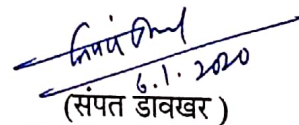 6.1.2020
(संपत डावखर )